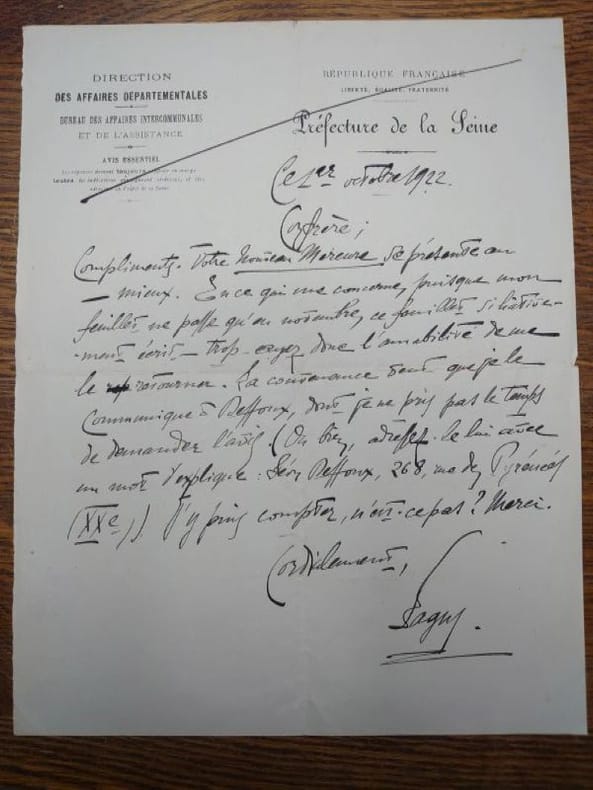 DIRECTION
DES AFFAIRES DÉPARTEMENTALES
BUREAU DES AFFAIRES INTERCOMMUNALES
ET DE L'ASSISTANCE
AVIS ESSENTIEL
RÉPUBLIQUE FRANÇAISE
LIBERTÉ, ÉGALITÉ, FRATERNITÉ
Préfecture de la Seine
Ce 1er octobre 1922.
Confrère,
Compliments. Votre Nouveau Mercure se présente au
mieux. En ce qui me concerne, puisque mon
feuillet ne passe qu'en novembre, ce feuillet si hâtive-
ment écrit – trop – ayez donc l'amabilité de me
le retourner. La convenance veut que je le
communique à Deffoux, dont je ne pris pas le temps
de demander l'avis. (Ou bien, adressez-le lui avec
un mot d'explique : Léon Deffoux, 268, rue des Pyrénées
(XXe)). J'y puis compter, n'est-ce pas? Merci.
Cordialement,